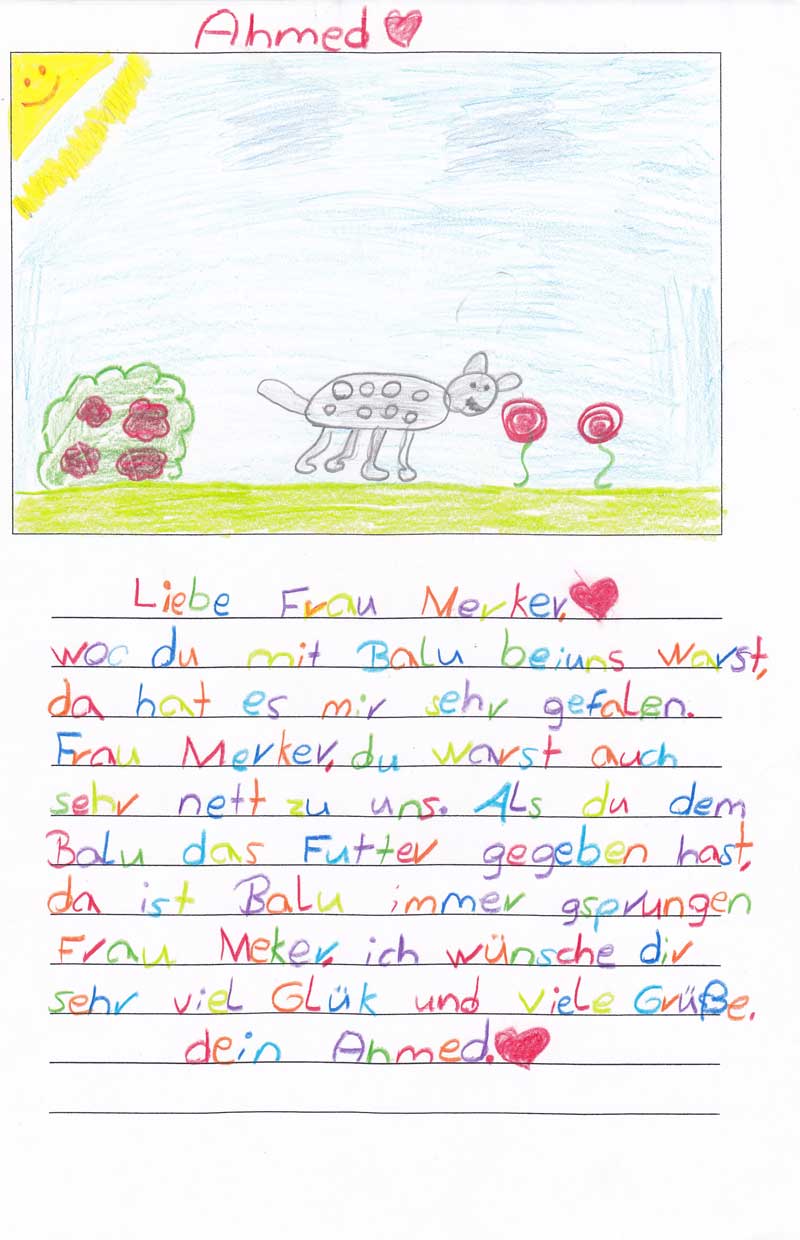 Ahmed
Liebe Frau Merker,
woc du mit Balu beiuns warst,
da hat es mir sehr gefalen.
Frau Merker, du warst auch
sehr nett zu uns. Als du dem
Balu das Futter gegeben hast,
da ist Balu immer gsprungen
Frau Meker, ich wünsche dir
sehr viel Glük und viele Grüße.
dein Ahmed.